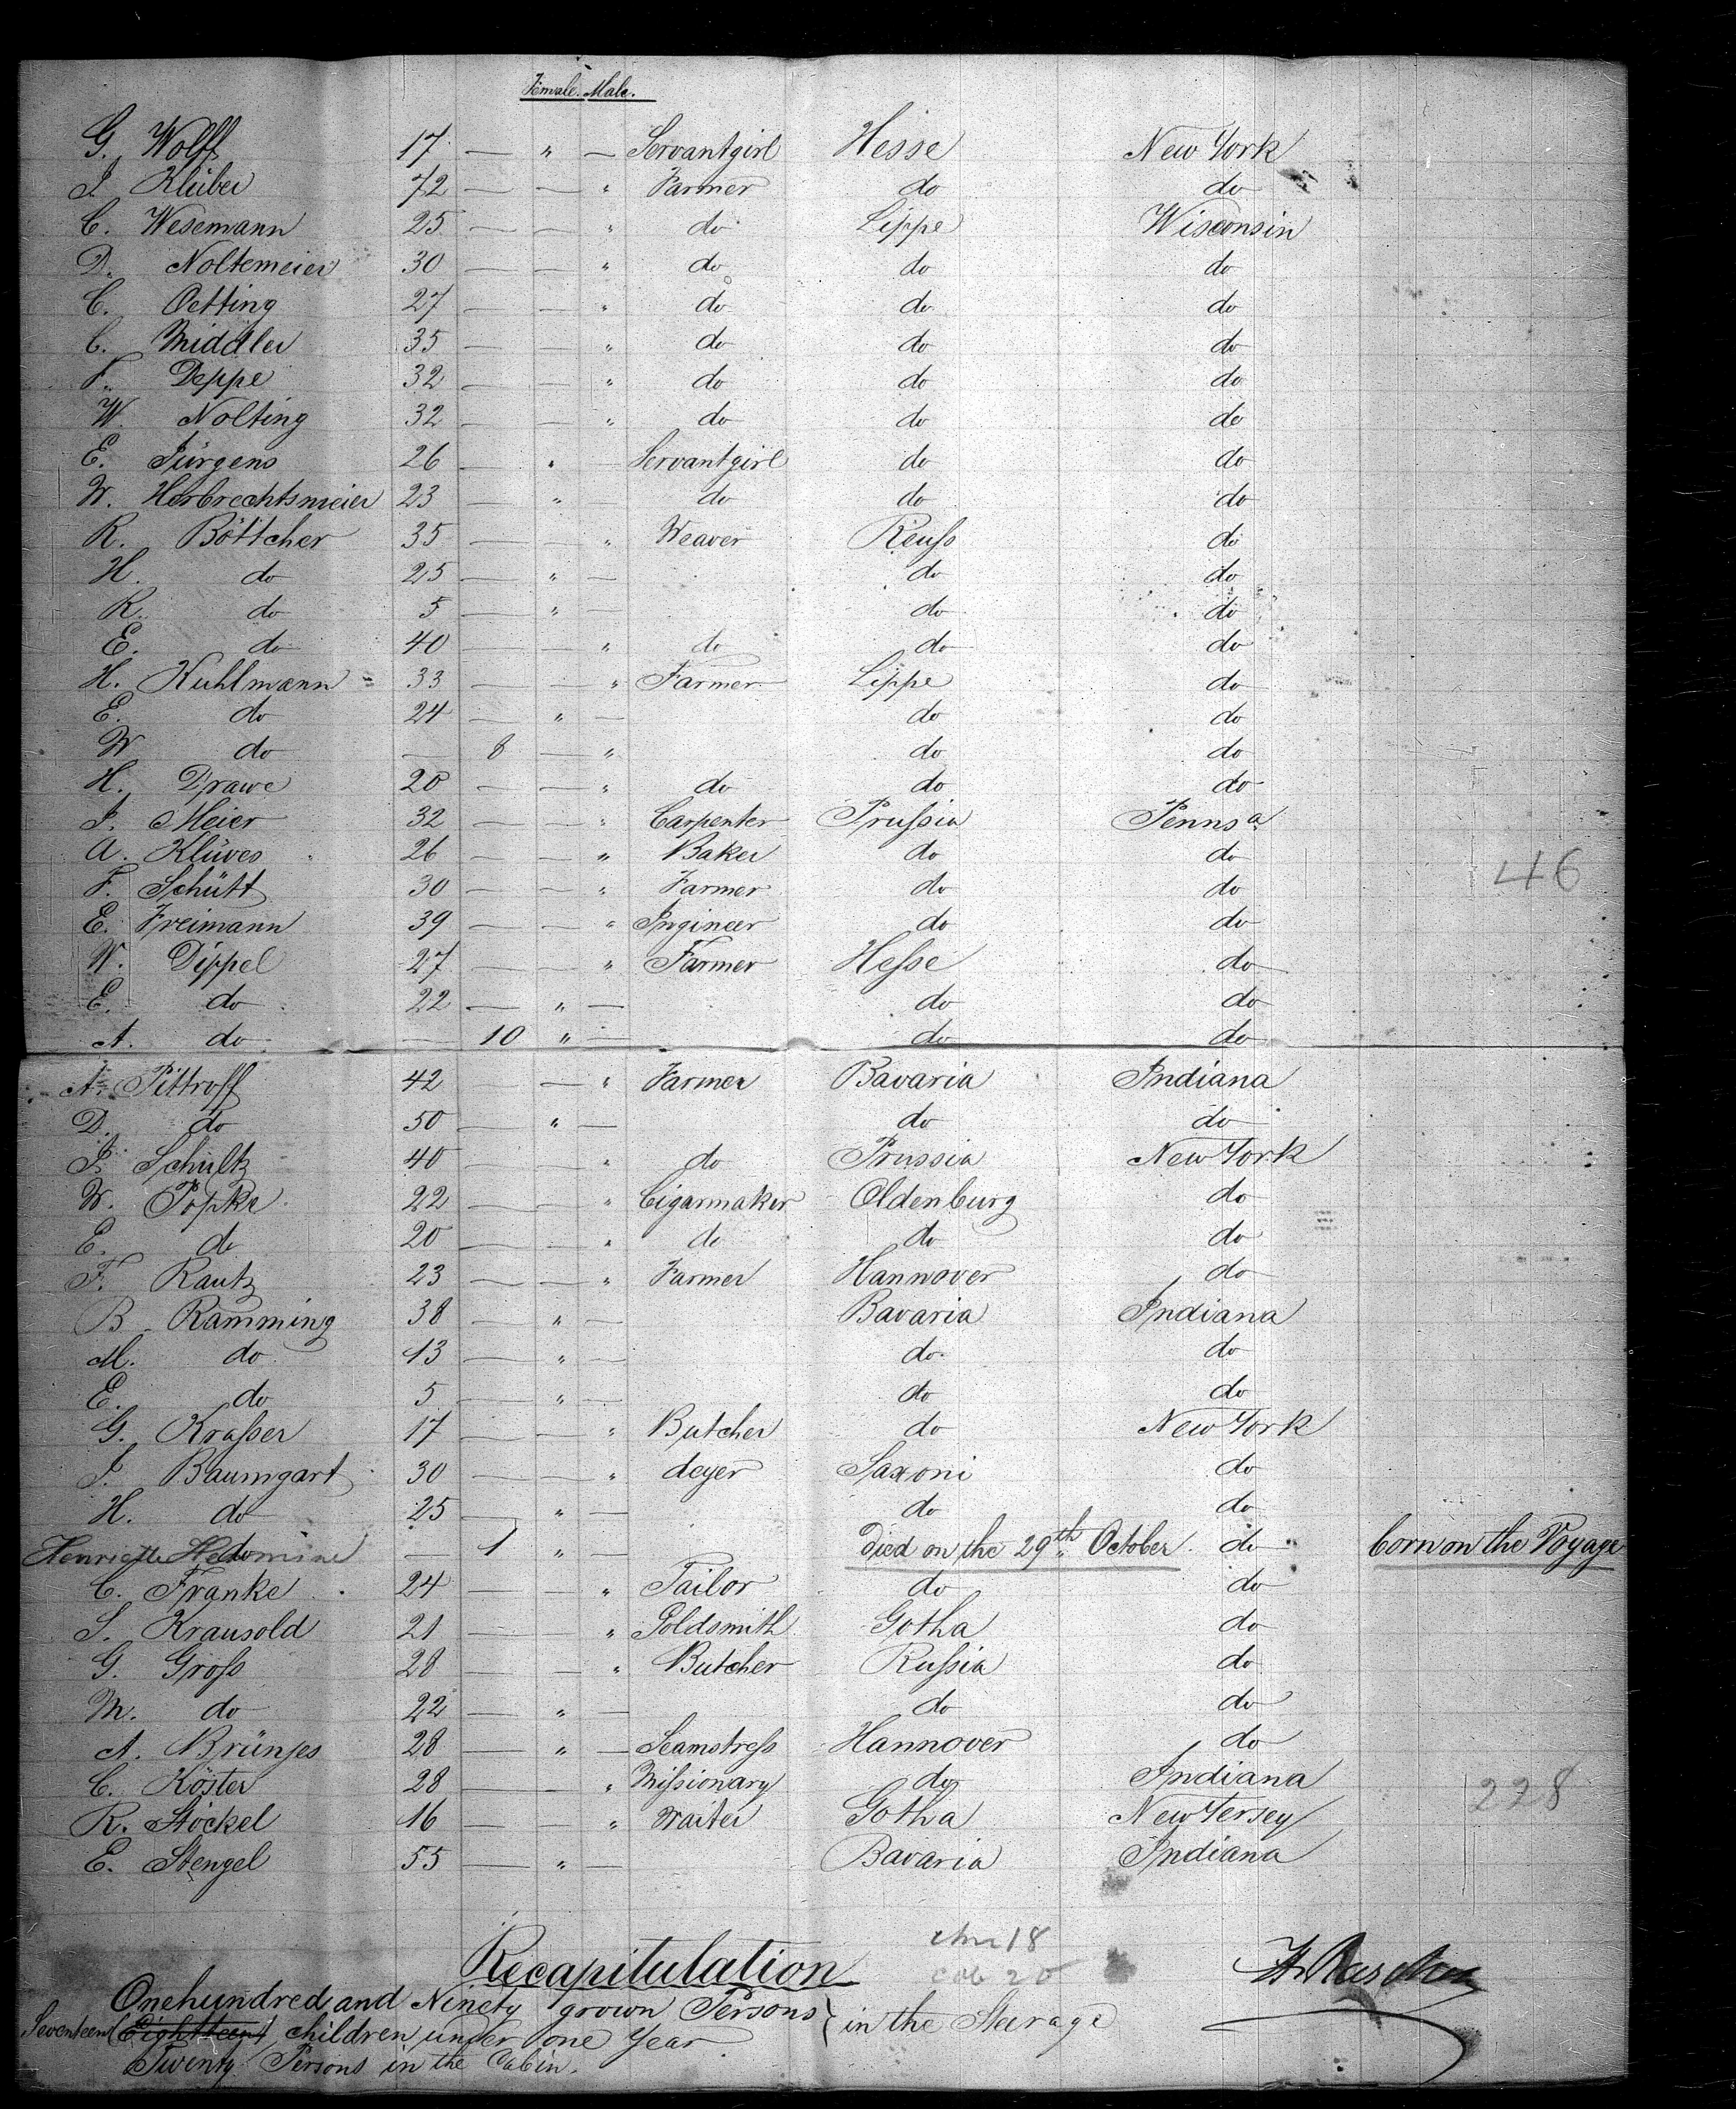 Female. Male.
G. Wolff 17 — " — Servantgirl Hesse New York
J. Klüber 72 — — " Farmer do do
C. Wesemann 25 — — " do Lippe Wisconsin
D. Noltemeier 30 — — " do do do
C. Oetting 27 — — " do do do
C. Middler 35 — — " do do do
F. Deppe 32 — — " do do do
W. Nolting 32 — — " do do do
E. Jürgens 26 — " — Servantgirl do do
W. Herbrechtsmeier 23 — " do do do
R. Böttcher 35 — — " Weaver Reuss do
H. do 25 — " — do do
R. do 5 — " — do do
E. do 40 — — " do do do
H. Kuhlmann 33 — — " Farmer Lippe do
E. do 24 — " — do do
W do — 8 — " do do
H. Drawe 20 — — " do do do
J. Meier 32 — — " Carpenter Prussia Pennsa
A. Klüves 26 — — " Baker do do
46
F. Schütt 30 — — " Farmer do do
E. Freimann 39 — — " Ingineer do do
W. Dippel 27 — — " Farmer Hesse do
E. do 22 — " — do do
A. do — 10 " — do do
A. Pittroff 42 — " Farmer Bavaria Indiana
D. do 50 — " — do do
J. Schultz 40 — — " do Prussia New York
W. Töpke 22 — — " Cigarmaker Oldenburg do
E. do 20 — — " do do do
F. Rautz 23 — — " Farmer Hannover do
B. Ramming 38 — " — Bavaria Indiana
M. do 13 — " — do do
E. do 5 — " — do do
G. Krasser 17 — — " Butcher do New York
J. Baumgart 30 — — " deyer Saxoni do
H. do 25 — " — do do
Henriette do — 1 " — Died on the 29th October. do born on the Voyage
C. Franke 24 — — " Tailor do do
S. Krausold 21 — — " Goldsmith Gotha do
G. Gross 28 — — " Butcher Russia do
M. do 22 — " — do do
A. Brünjes 28 — " — Seamstress Hannover do
C. Köster 28 — — " Missionary do Indiana
228
R. Stöckel 16 — — " Waiter Gotha New Jersey
E. Stengel 55 — " — Bavaria Indiana
18
20
Recapitulation
Onehundred and Ninety grown Persons } in the Steerage
Seventeen Eighteen children under one Year
Twenty Persons in the Cabin.